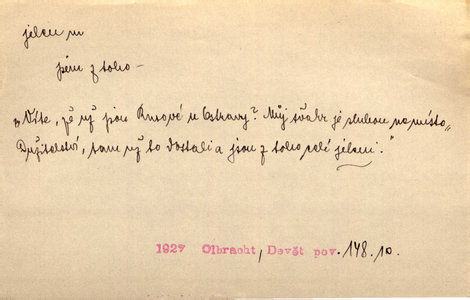 jelen m
jsem z toho –
„Víte, že už jsou Rusové u Ostravy? Můj švakr je sluhou na místo„
držitelství, tam už to dostali a jsou z toho celí jelení."
1927 Olbracht, Devět pov. 148.10.